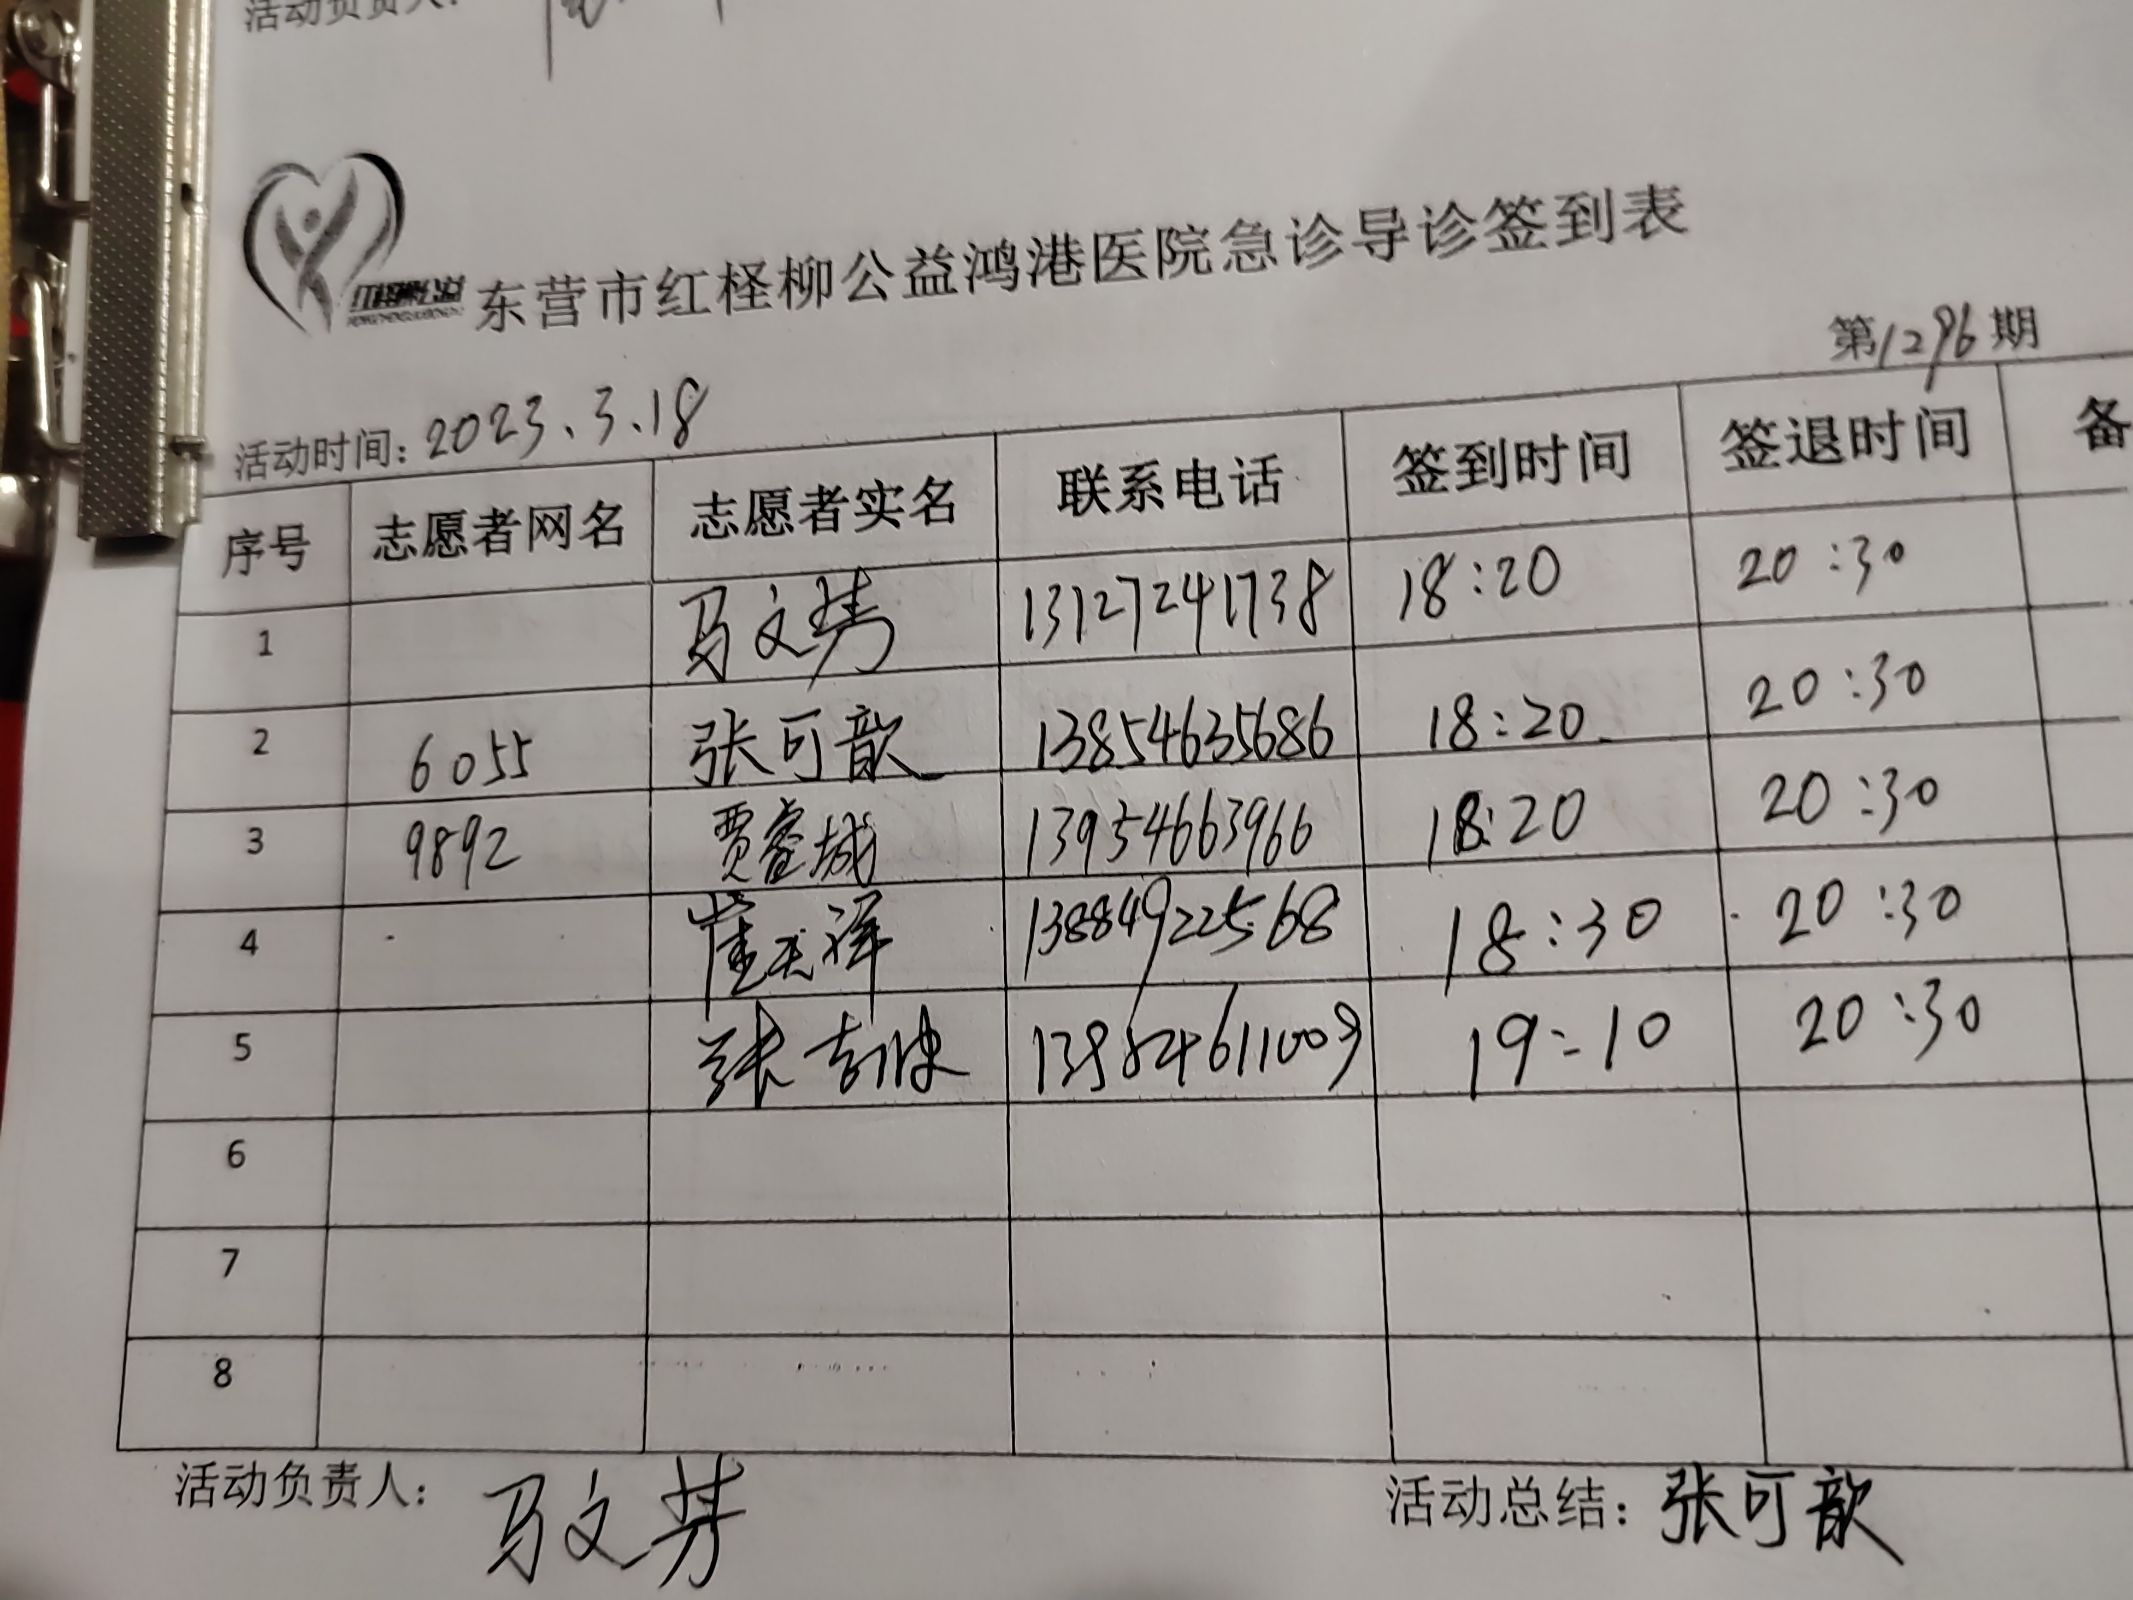 活动负责人:
东营市红柽柳公益鸿港医院急诊导诊签到表
第1296期
活动时间: 2023.3.18
序号 志愿者网名 志愿者实名 联系电话 签到时间 签退时间 备
1 马文芳 13127241738 18:20 20:30
2 6055 张可歆 13854635686 18:20 20:30
3 9892 贾睿城 13954663966 18:20 20:30
4 崔 13884922568 18:30 20:30
5 张 19:10 20:30
6
7
8
活动负责人: 马文芳 活动总结: 张可歆